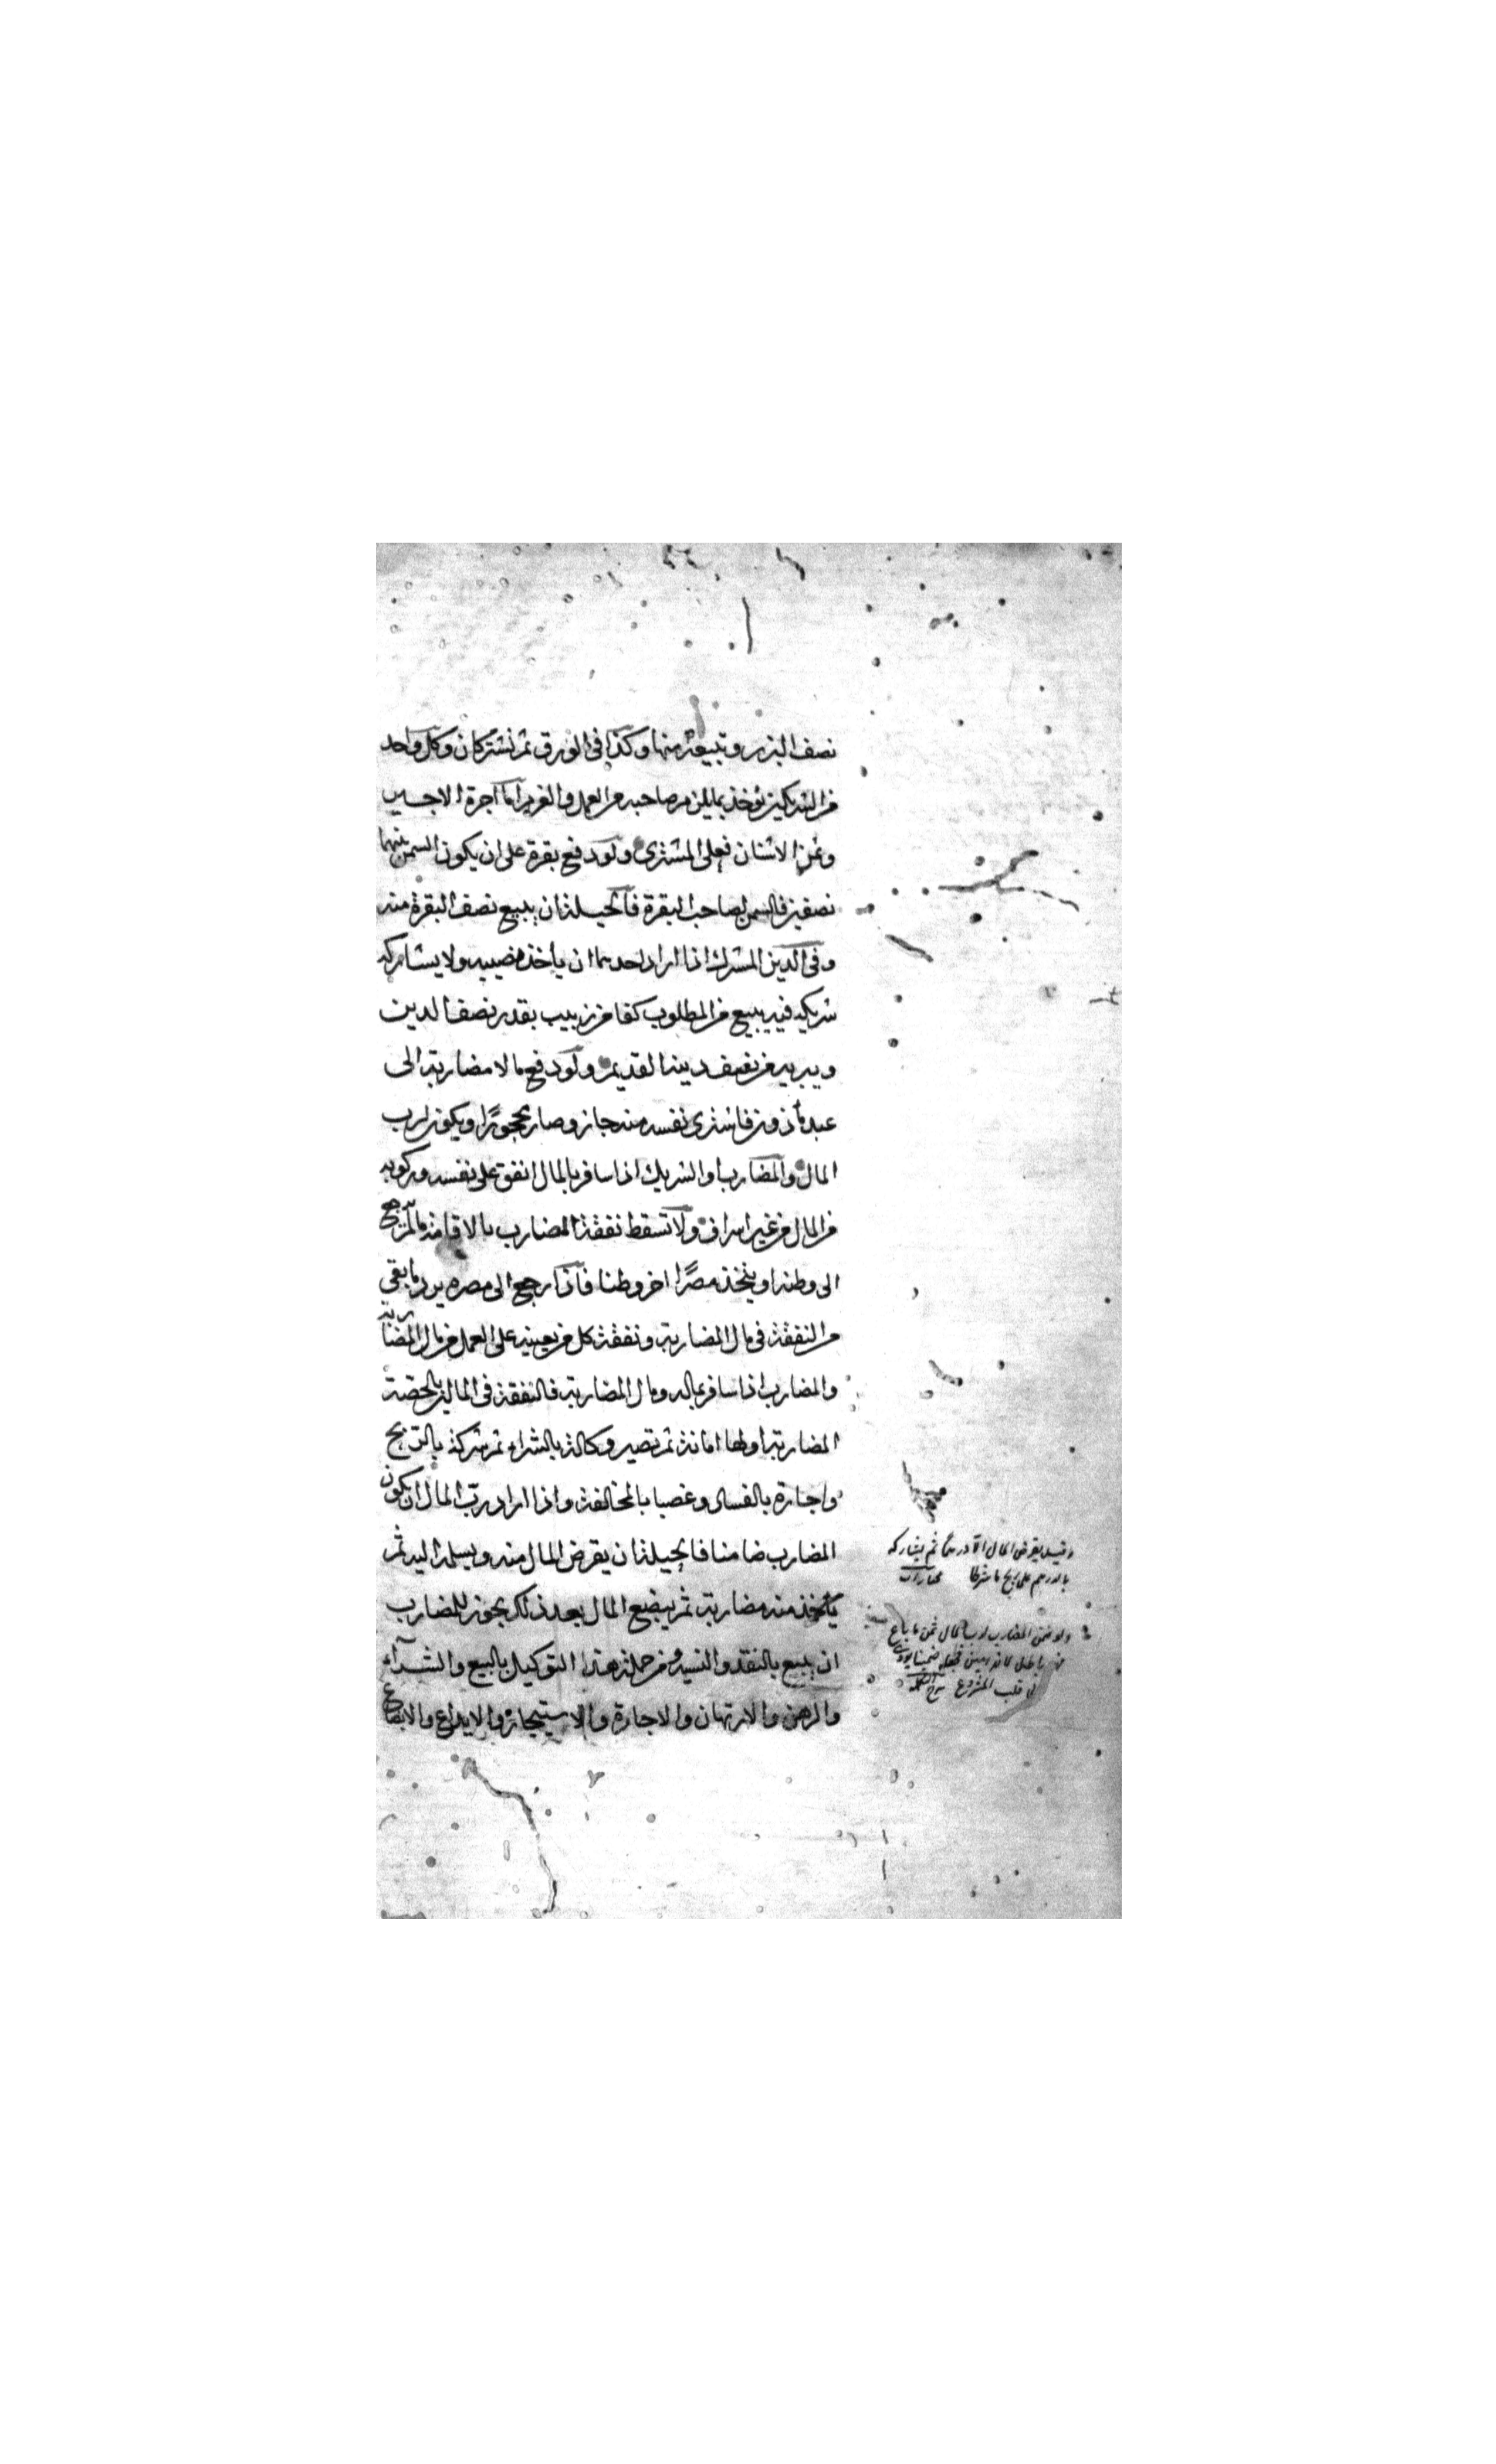 نصف البزر وتبيعه منها وكذا فى الورق ثم تشتركان وكل واحد
من الشريكين يؤخذ بما يلزم صاحبه من العمل والغرم اما اجرة الاجير
وثمن الاشنان فعلى المشترى ولو دفع بقرة على ان يكون السمن بينهما
نصفين فالسمن لصاحب البقرة فالحيلة ان يبيع نصف البقرة منه
وفى الدين المشترك اذا اراد احدهما ان يأخذ نصيبه ولا يشاركه
شريكه فيه يبيع من المطلوب كفا من زبيب بقدر نصف الدين
ويبريه من نصف دينه القديم ولو دفع مالا مضاربة الى
عبد مأذون فاشترى نفسه منه جاز وصار محجورًا ويكون لرب
المال والمضارب او الشريك اذا سافر بالمال انفق على نفسه وركوبه
من المال من غير اسراف ولا تسقط نفقة المضارب بالاقامة ما لم يرجع
الى وطنه او يتخذ مصرًا اخر وطنا فاذا رجع الى مصره يرد ما بقى
من النفقة فى مال المضاربة ونفقة كل من يعينه على العمل من مال المضاربة
والمضارب اذا سافر بماله ومال المضاربة فالنفقة فى المالين بالحصة
المضاربة اولها امانة ثم تصير وكالة بالشراء ثم شركة بالربح
واجارة بالفساد وغصبا بالمخالفة واذا اراد رب المال ان يكون
المضارب ضامنا فالحيلة ان يقرض المال منه ويسلمه اليه ثم
يأخذ منه مضاربة ثم يبضع المال بعد ذلك يجوز للمضارب
ان يبيع بالنقد والنسيه ومن جملة هذا التوكيل بالبيع والشرآء
والرهن والارتهان والاجارة والاستيجار والايداع والابضاع
وقيل يقرض المال الا درهما ثم يشاركه
بالدرهم على ربح ما شرطا مختارات
ولو ضمن المضارب لرب المال ثمن ما باع
فى قلب المشروع